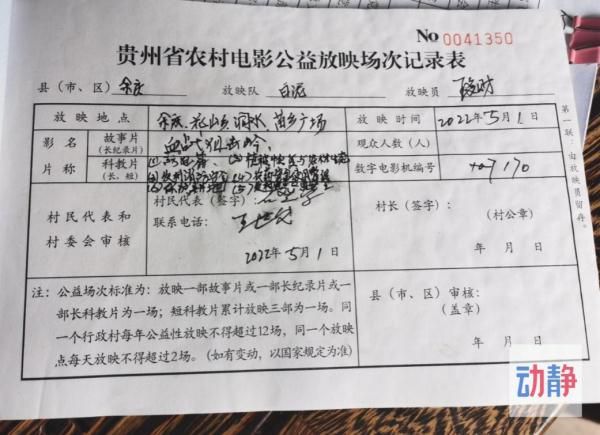 No 0041350
贵州省农村电影公益放映场次记录表
县（市、区）余庆 放映队 白泥 放映员
放映地点 余庆、花山乡 苗乡广场 放映时间 2022年5月1日
影名片称 故事片（长纪录片） 血战 狙击岭 观众人数（人）
科教片（长、短） 数字电影机编号 170
村民代表和村委会审核
村民代表（签字）：
联系电话：
2022年5月1日
村长（签字）：
（村公章）
年 月 日
注：公益场次标准为：放映一部故事片或一部长纪录片或一
部长科教片为一场；短科教片累计放映三部为一场。同
一个行政村每年公益性放映不得超过12场，同一个放映
点每天放映不得超过2场。（如有变动，以国家规定为准）
县（市、区）审核：
（盖章）
年 月 日
第一联：由放映员留存。
动静